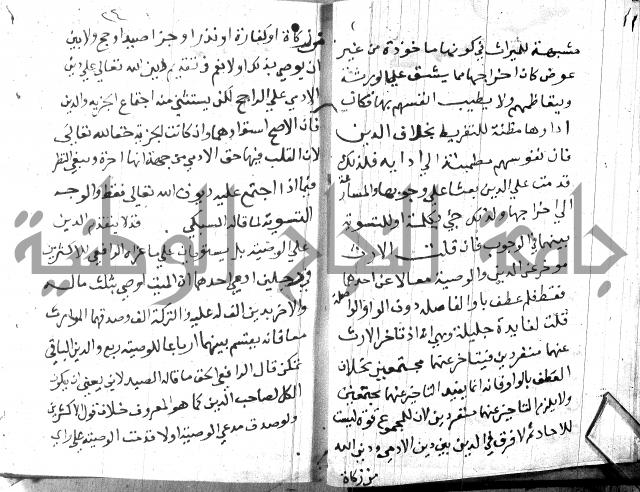 مشبهة للميراث في كونها ماخوذة من غير
عوض كان اخراجها مما يشق على الورثة
ويتعاظمهم ولا يطيب انفسهم بها فكان
اداوها مظنة للتفريط بخلاف الدين
فان نفوسهم مطمئنة الى ادايه فلذلك
قدمت على الدين بعثا على وجوبها والمسارعة
الى اخراجها ولذلك جئ بكلمة او للتسوية
بينهما في الوجوب فان قلت الارث
موخر عن الدين والوصية معا لا عن احدهما
فقط فلم عطف باو الفاصلة دون الواو الواصلة
قلت لفايدة جليلة وهي انه اذا تاخر الارث
عنهما منفردين فيتاخر عنهما مجتمعين بخلاف
العطف بالواو فانه انما يفيد التاخير عنهما مجتمعين
ولا يلزم التاخير عنهما منفردين لان للمجموع قوة ليست
للاحاد ثم لا فرق في الدين بين دين الادمي ودين الله
من زكاة
٢٤
من زكاة او كفارة او نذر او جزا صيد او حج ولا بين
ان يوصي بذلك او لا نعم في تقديم دين الله تعالى على دين
الادمي على الراجح لكن يستثنى منه اجتماع الجزية والدين
فان الاصح استواوهما وان كانت الجزية حقا لله تعالى
لان المغلب فيها حق الادمي من جهة انها اجرة وينبغي النظر
فيما اذا اجتمع عليه ديون الله تعالى فقط والوجه
التسوية كما قاله السبكي قد لا يتقدم الدين
على الوصية بل يستويان على ما عزاه الرافعي للاكثرين
في رجلين ادعى احدهما ان الميت اوصى بثلث ماله
والاخر بدين الف له عليه والتركة الف وصدقهما الوارث
معا فانه يقسم بينهما ارباعا للوصية ربع والدين الباقي
لكن قال الرافعي الحق ما قاله الصيدلاني يعني ان يكون
الكل لصاحب الدين كما هو المعروف خلاف قول الاكثرين
ولو صدق مدعي الوصية اولا قدمت الوصية على راي
جامعة النجاح الوطنية